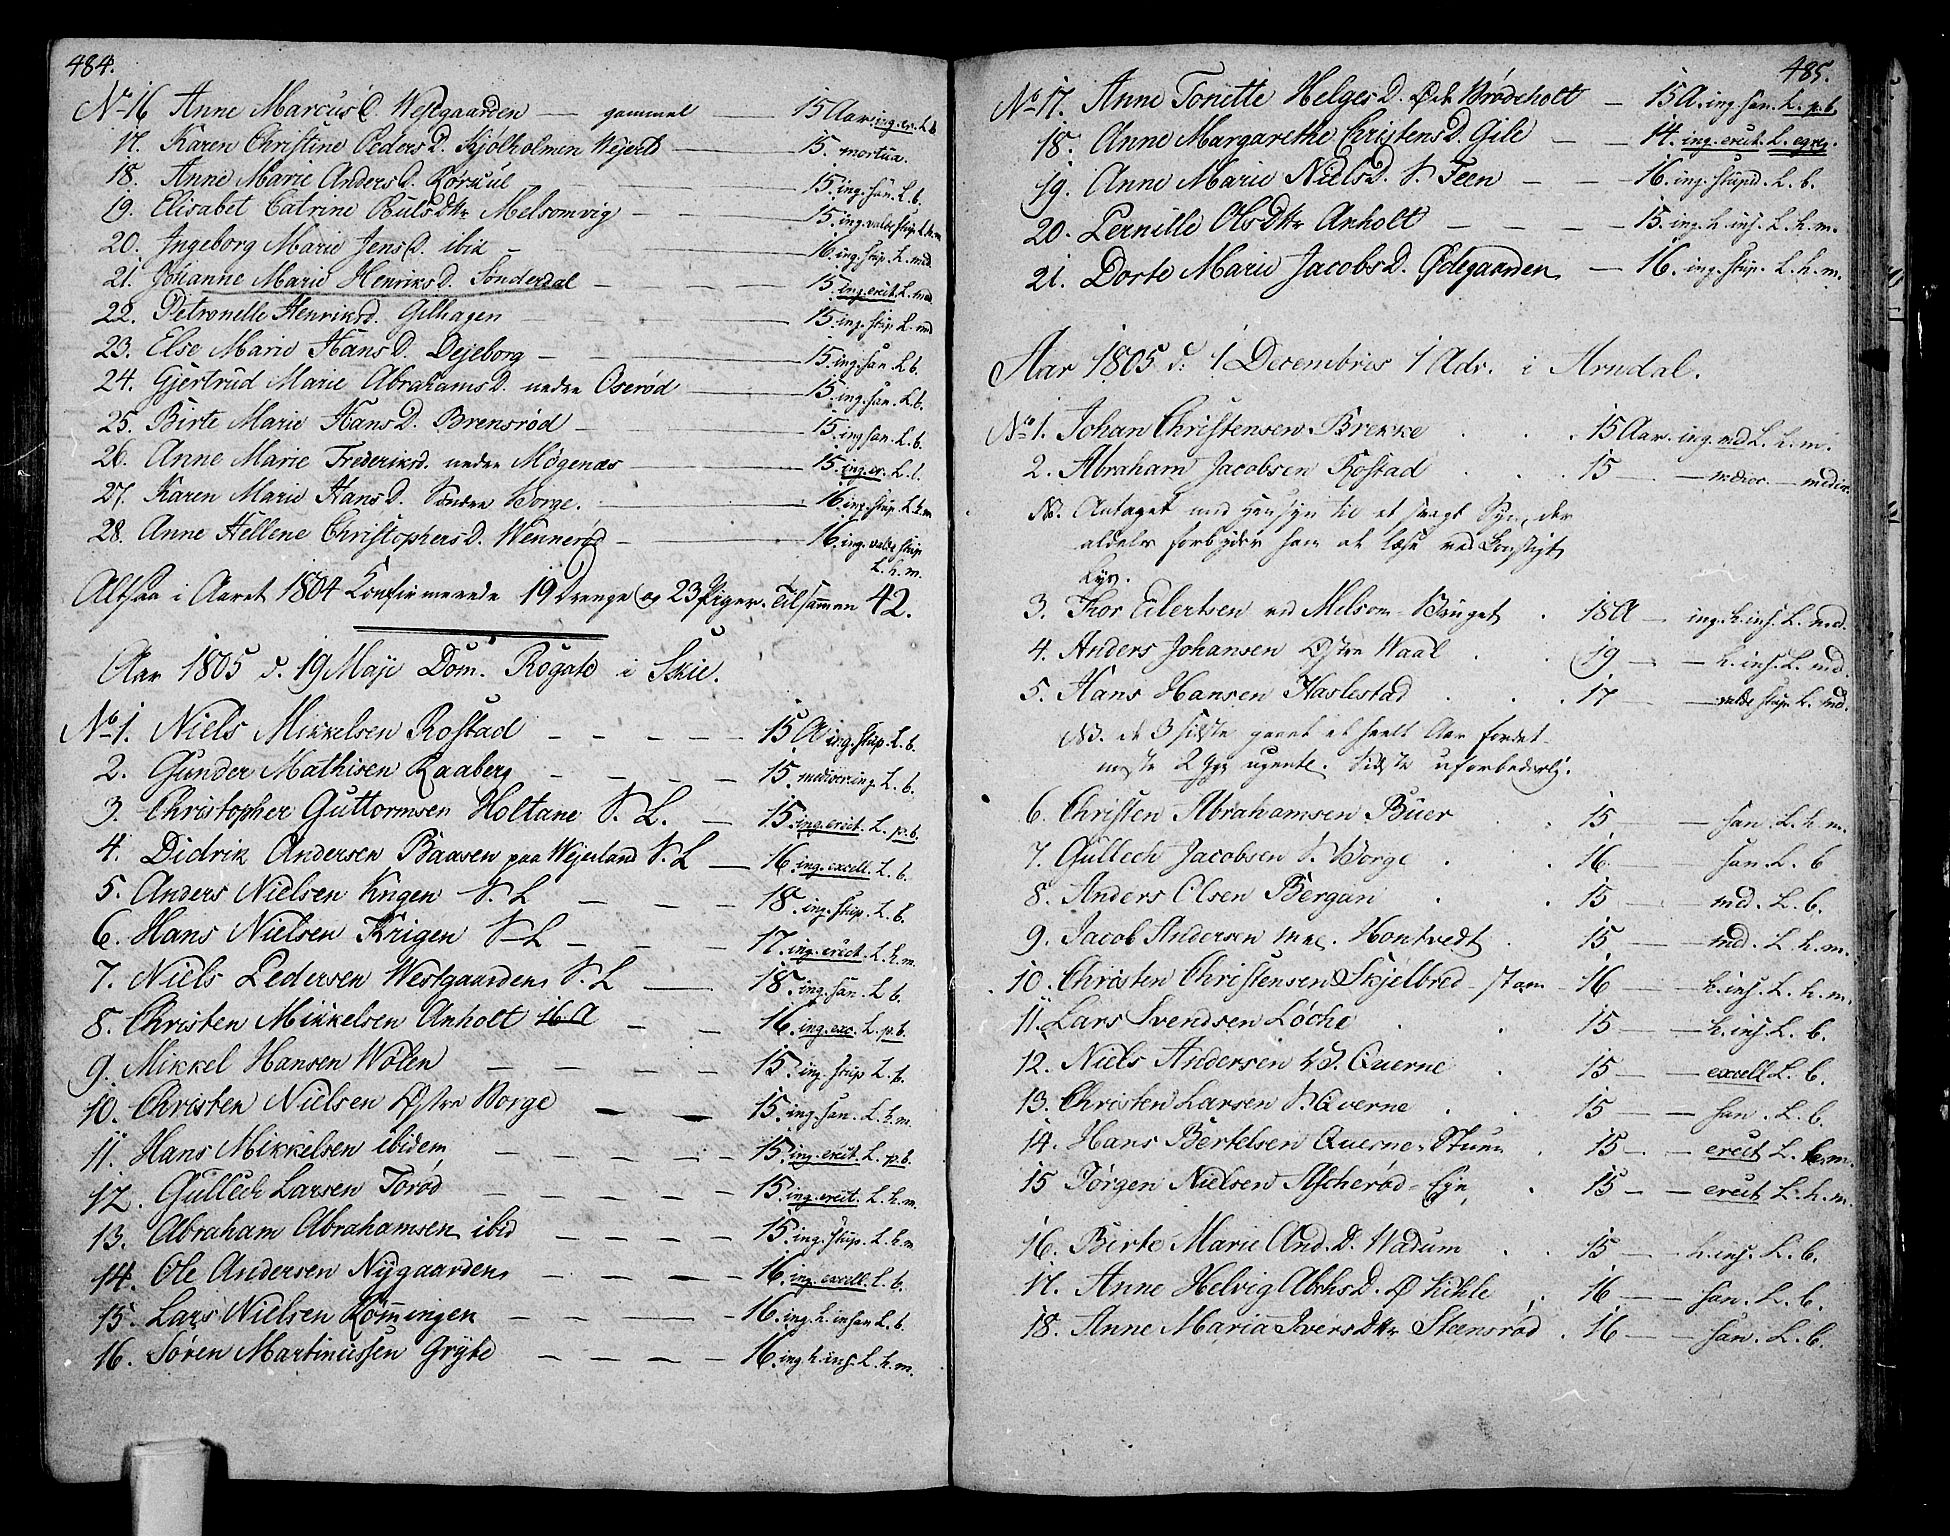 484.
No 16 Anne Marcus D. Westgaarden — gammel — 15 Aar. ing. er. L. b.
17. Karen Christine Peders D. Kjølholmen Vejerl. — 15. mortua.
18. Anne Marie Anders D. Rørkul — 15. ing. san. L. b.
19. Elisabet Catrine Puls Dtr Melsomvig — 15. ing. valde stup. L. h. m
20. Ingeborg Marie Jens D. ibid — 16. ing. stup. L. med.
21. Johanne Marie Henriks D. Sønderdal — 15. ing. erect. L. med.
22. Petronelle Henriksd. Gilhagen — 15. ing. stup. L. md
23. Else Marie Hans D. Dejeborg — 15. ing. san L. b.
24. Gjertrud Marie Abrahams D. nedre Oserød — 15. ing. san. L. b.
25. Birte Marie Hans D. Brensrød — 15. ing san. L. b.
26. Anne Marie Frederiksd. nedre Møgenæs — 15. ing. er. L. b.
27. Karen Marie Hans D. Søndre Borge. — 16. ing. stup. L. h. m
28. Anne Hellene Christophers D. Wennerød — 16. ing. valde stup
L. h. m.
Altsaa i Aaret 1804 Confirmerede 19 Drenge og 23 Piger. Tilsammen 42.
Aar 1805 d. 19 Maji Dom. Rogate i Skie.
No 1. Niels Mikkelsen Rostad — 15 A ing. stup. L. b.
2. Gunder Mathisen Raaberg — 15. mediocr ing. L. b.
3. Christopher Guttormsen Holtane S. L. — 15. ing. erect. L. p. b.
4. Didrik Andersen Baasen paa Wejerland S. L — 16 ing. excell. L. b.
5. Anders Nielsen Engen S. L — 18. ing. stup. L. b.
6. Hans Nielsen Krigen S. L — 17. ing. erect. L. h. m.
7. Niels Pedersen Westgaarden S. L — 18. ing. san. L b.
8. Christen Mikkelsen Anholt 16. A — 16. ing. exc. L. p. b.
9. Mikkel Hansen Wølen — 15. ing. stup L. b.
10. Christen Nielsen Østre Borge — 15. ing. san. L. h. m.
11. Hans Mikkelsen ibidem — 15. ing. erect. L. p. b.
12. Gullech Larsen Torød — 15. ing. erect. L. h. m.
13. Abraham Abrahamsen ibid — 15. ing. stup. L. h. m
14. Ole Andersen Nygaarden — 16. ing. excell. L. b.
15. Lars Nielsen Rømmingen — 16. ing. h. insan L. b.
16. Søren Martinussen Gryte — 16. ing h. ins. L. h. m.
485.
No 17. Anne Tonette Helges D. Brødeholt — 15 A. ing. san. L. p. b.
18. Anne Margarethe Christens D. Gile — 14. ing. erect. L. egreg.
19. Anne Marie Niels D. S. Feen — 16. ing. stupd. L. b.
20. Pernille Ols Dtr Anholt — 15. ing. h. ins. L. h. m.
21. Dorte Marie Jacobs D. Ødegaarden — 16. ing. stup. L. h. m.
Aar 1805 d. 1 Decembris 1 Adv. i Arndal.
No 1. Johan Christensen Brekke — 15 Aar. ing. md L. h. m.
2. Abraham Jacobsen Rostad — 15 — medior. — medior.
NB. Antaget med Hensyn til et svagt Syn, der
aldeles forbyder ham at læse ved Kunstigt
Lys.
3. Thor Eilertsen ved Melsom Bruget — 18 A — ing. h. ins. L. md.
4. Anders Johansen Østre Waal — 19 — h. ins. L. md.
5. Hans Hansen Haslestad — 17 — valde stup. L. md.
NB. de 3 sidste gaaet et heelt Aar fordet
meste 2 Gge ugentl. Sidste uforbederlig.
6. Christen Abrahamsen Buer — 15 — san. L. h. m.
7. Gullech Jacobsen S. Borge — 16. san. L. b
8. Anders Olsen Bergan — 15 — md. L. b.
9. Jacob Andersen Hontvedt — 15 — md. L. h. m.
10. Christen Christensen Skjelbred — Stam — 16 — h. ins. L. h. m.
11. Lars Svendsen Løche — 15 — h. ins. L. b.
12. Niels Andersen Querne — 15 — excell L. b.
13. Christen Larsen S. Qverne — 15 — san. L. b.
14. Hans Bertelsen Querne Stum — 15 — erect L. h. m.
15 Jørgen Nielsen Ascherød — Eje — 15 — erect L. h. m.
16. Birte Marie And. D. Wadum — 15 — h. ins. L. b.
17. Anne Helvig Abrhs D. Ø Kihle — 16 — san. L. b.
18. Anne Maria Ivers Dtr Steensrød — 16 — san. L. b.